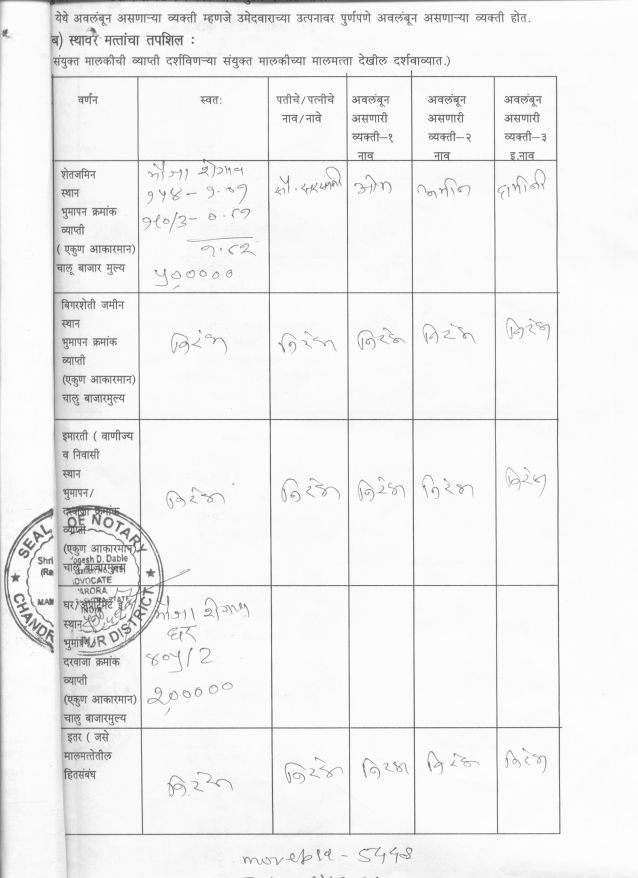 येथे अवलंबून असणाऱ्या व्यक्ती म्हणजे उमेदवाराच्या उत्पनावर पुर्णपणे अवलंबून असणाऱ्या व्यक्ती होत.
ब) स्थावर मत्तांचा तपशिल :
संयुक्त मालकीची व्याप्ती दर्शविणऱ्या संयुक्त मालकीच्या मालमत्ता देखील दर्शवाव्यात.)
वर्णन
स्वतः
पतीचे/पत्नीचे
नाव/नावे
अवलंबून
असणारी
व्यक्ती-१
नाव
अवलंबून
असणारी
व्यक्ती-२
नाव
अवलंबून
असणारी
व्यक्ती-३
इ.नाव
शेतजमिन
स्थान
भुमापन क्रमांक
व्याप्ती
( एकुण आकारमान)
चालू बाजार मुल्य
मौजा शेगाव
१५४ - १.०१
१८०/3 - ०.८१
१.८२
५,०००००
सौ.
ओम
दामीनी
बिगरशेती जमीन
स्थान
भुमापन क्रमांक
व्याप्ती
(एकुण आकारमान)
चालु बाजारमुल्य
निरंक
निरंक
निरंक
निरंक
निरंक
इमारती ( वाणीज्य
व निवासी
स्थान
भुमापन/
दरवाजा क्रमांक
व्याप्ती
(एकुण आकारमान)
चालु बाजारमुल्य
निरंक
निरंक
निरंक
निरंक
निरंक
SEAL OF NOTARY
Shri
Yogesh D. Dable
ADVOCATE
WARORA
CHANDRAPUR DISTRICT
घर/अपार्टमेंट इ.
स्थान
भुमापन/
दरवाजा क्रमांक
व्याप्ती
(एकुण आकारमान)
चालु बाजारमुल्य
मौजा शेगाव
घर
४०५/2
2,०००००
इतर ( जसे
मालमत्तेतील
हितसंबंध
निरंक
निरंक
निरंक
निरंक
निरंक